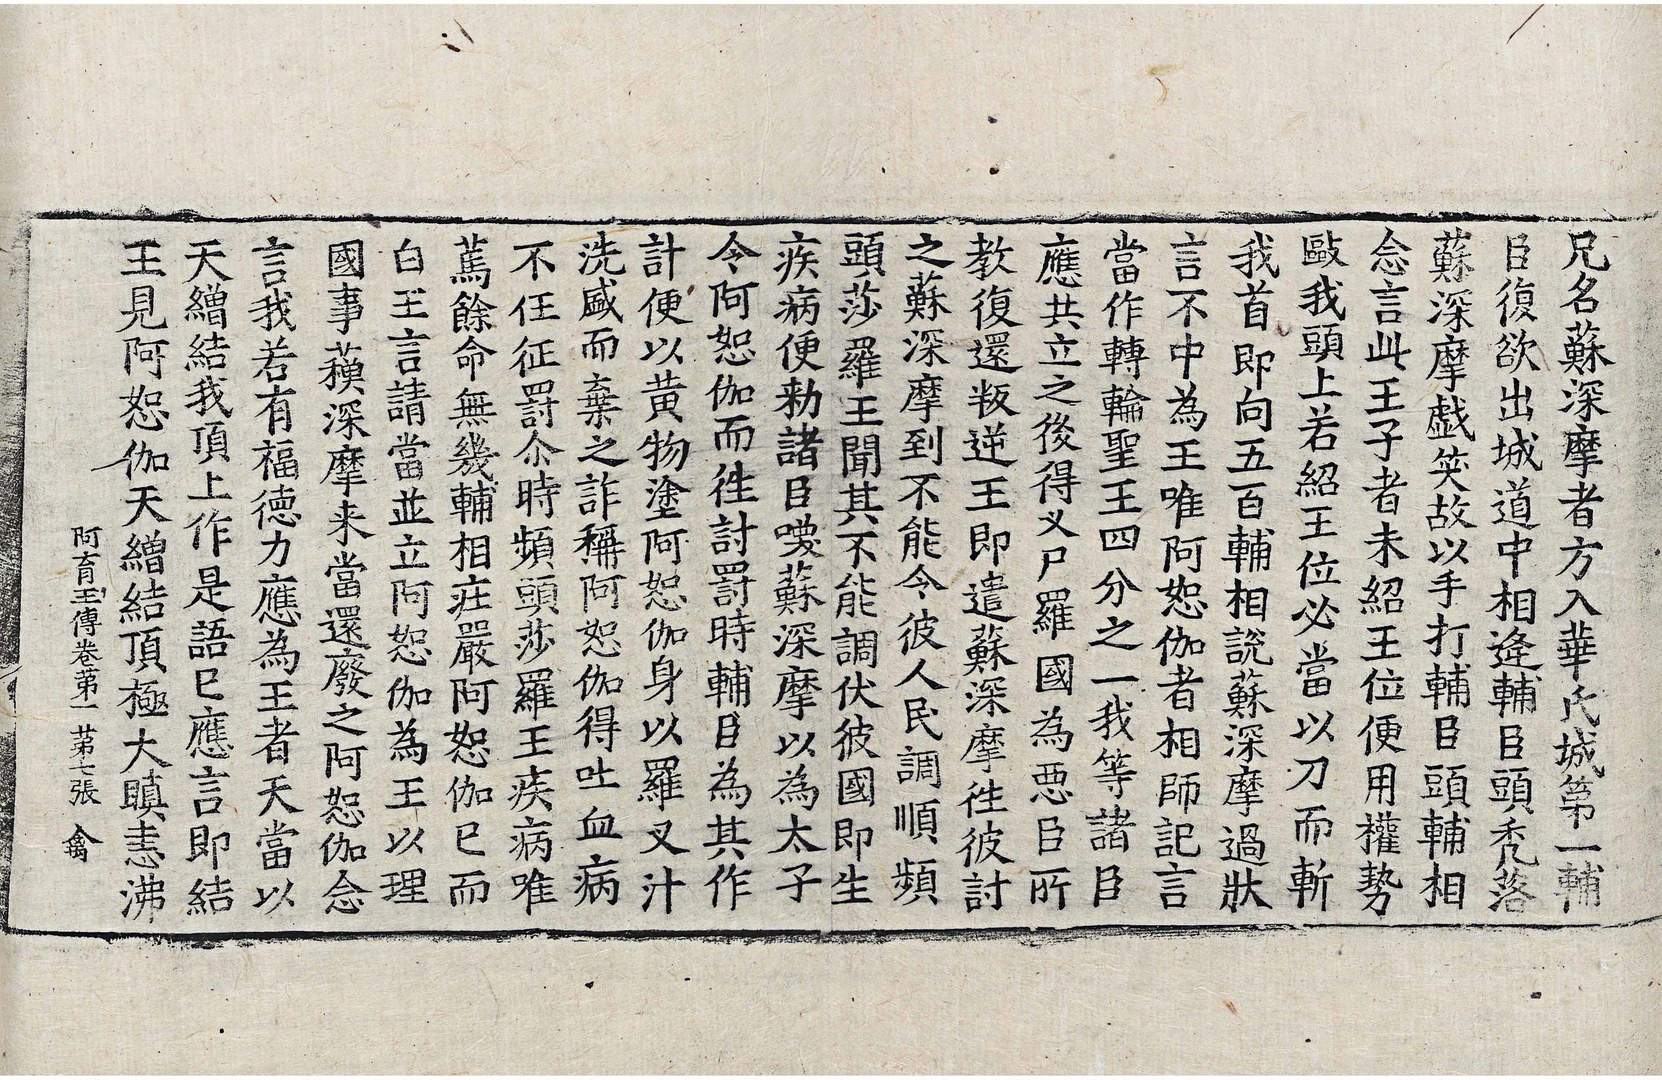 兄名蘇深摩者方入華氏城第一輔
臣復欲出城道中相逢輔臣頭禿落
蘇深摩戱笑故以手打輔臣頭輔相
念言此王子者未紹王位便用權勢
敺我頭上若紹王位必當以刀而斬
我首即向五百輔相說蘇深摩過狀
言不中為王唯阿恕伽者相師記言
當作轉輪聖王四分之一我等諸臣
應共立之後得叉尸羅國為悪臣所
教復還叛逆王即遣蘇深摩徃彼討
之蘇深摩到不能令彼人民調順頻
頭莎羅王聞其不能調伏彼國即生
疾病便勑諸臣喚蘇深摩以為太子
令阿恕伽而徃討罸時輔臣為其作
計便以黃物塗阿恕伽身以羅叉汁
洗盛而棄之詐稱阿恕伽得吐血病
不任征罸尒時頻頭莎羅王疾病唯
篤餘命無幾輔相莊嚴阿恕伽已而
白王言請當並立阿恕伽為王以理
國事蘓深摩来當還廢之阿恕伽念
言我若有福德力應為王者天當以
天繒結我頂上作是語已應言即結
王見阿恕伽天繒結頂極大瞋恚沸
阿育王傳卷第一 苐七張 禽